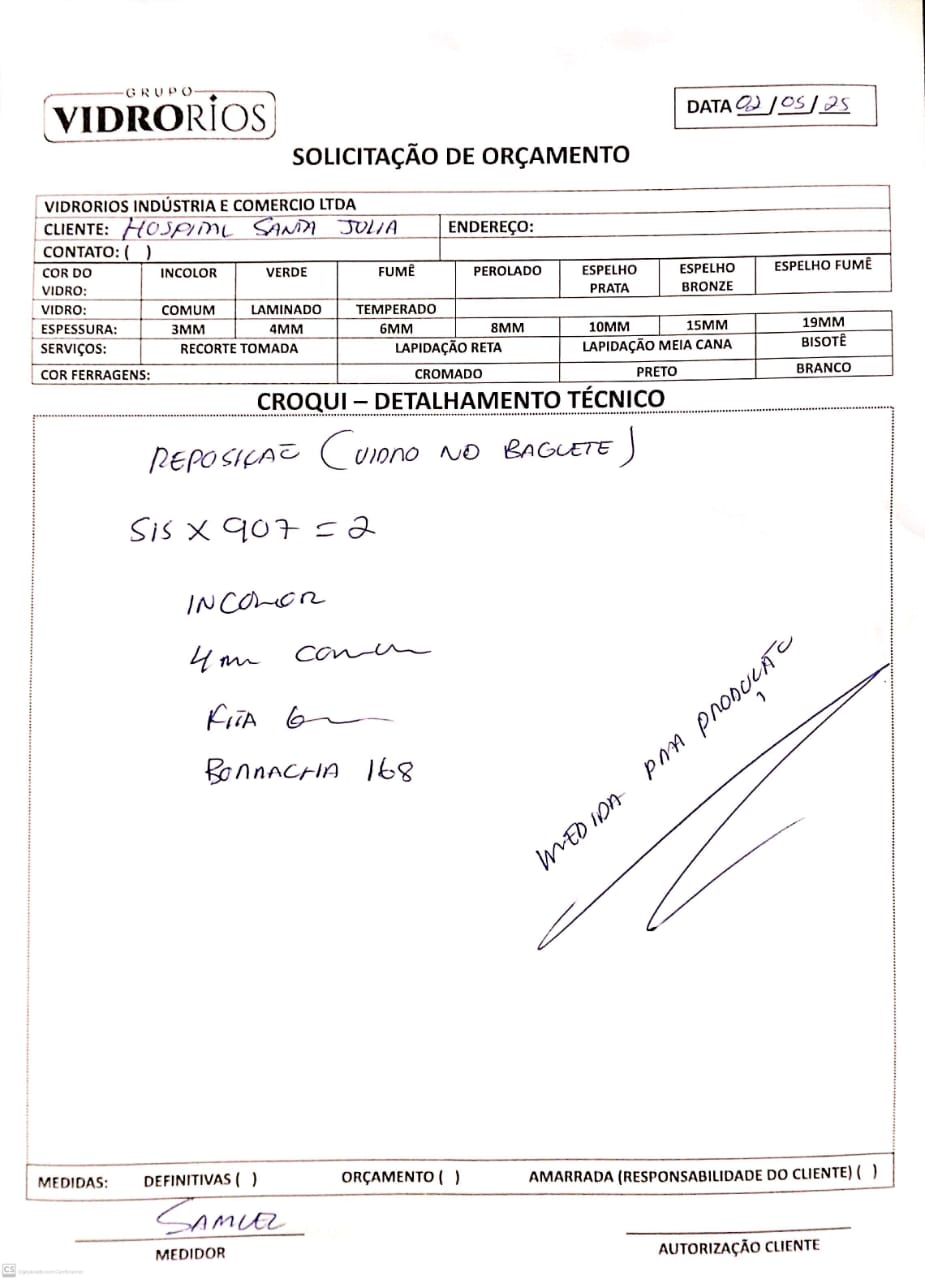 GRUPO
VIDRORIOS
DATA 02/05/25
SOLICITAÇÃO DE ORÇAMENTO
VIDRORIOS INDÚSTRIA E COMERCIO LTDA
CLIENTE: HOSPITAL SANTA JULIA ENDEREÇO:
CONTATO: ( )
COR DO VIDRO: INCOLOR VERDE FUMÊ PEROLADO ESPELHO PRATA ESPELHO BRONZE ESPELHO FUMÊ
VIDRO: COMUM LAMINADO TEMPERADO
ESPESSURA: 3MM 4MM 6MM 8MM 10MM 15MM 19MM
SERVIÇOS: RECORTE TOMADA LAPIDAÇÃO RETA LAPIDAÇÃO MEIA CANA BISOTÊ
COR FERRAGENS: CROMADO PRETO BRANCO
CROQUI – DETALHAMENTO TÉCNICO
REPOSIÇÃO (VIDRO NO BAGUETE)
515 X 907 = 2
INCOLOR
4mm comum
FITA 6
BORRACHA 168
MEDIDA PARA PRODUÇÃO
MEDIDAS: DEFINITIVAS ( ) ORÇAMENTO ( ) AMARRADA (RESPONSABILIDADE DO CLIENTE) ( )
SAMUEL
MEDIDOR
AUTORIZAÇÃO CLIENTE
CS